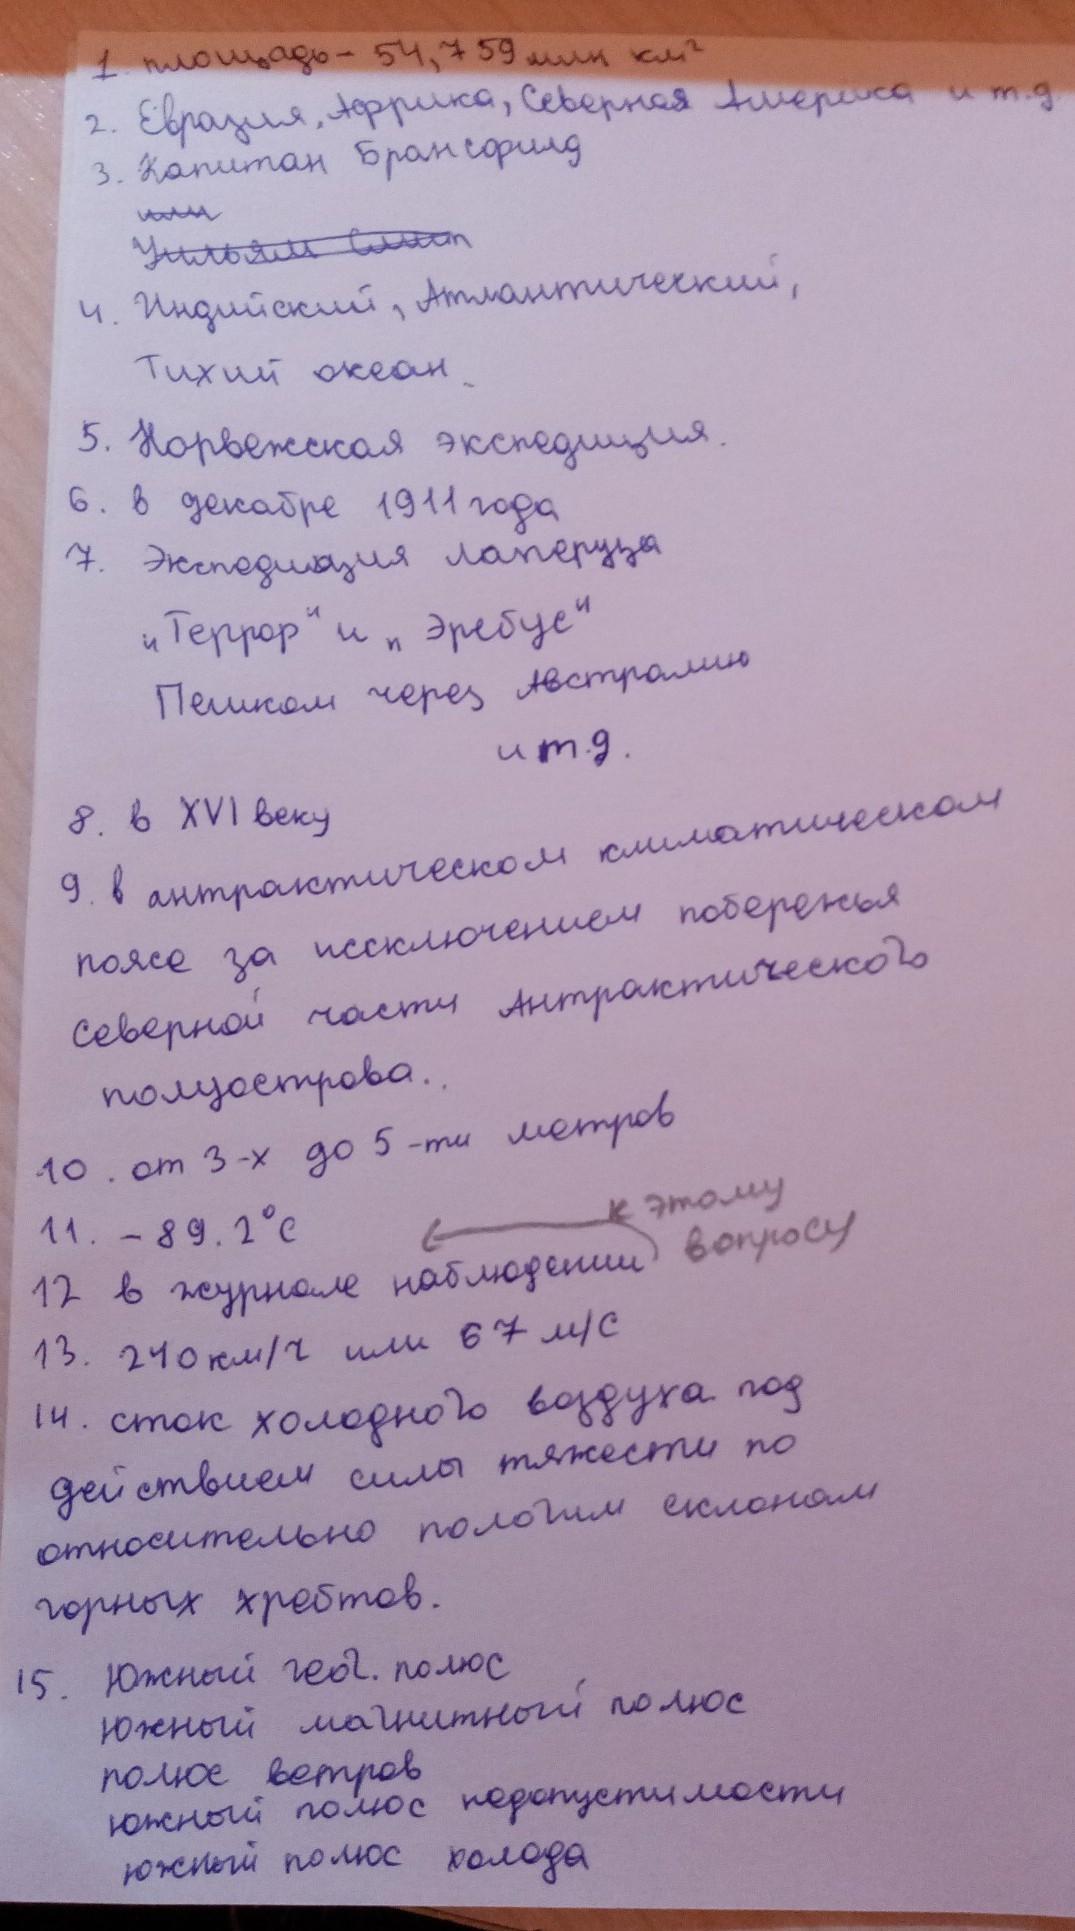 1. площадь - 54,759 млн км²
2. Евразия, Африка, Северная Америка и т.д
3. Капитан Брансфилд
или
Уильям Смит
4. Индийский, Атлантический,
Тихий океан.
5. Норвежская экспедиция.
6. в декабре 1911 года
7. Экспедиция Лаперуза
"Террор" и "Эребус"
Пешком через Австралию
и т.д.
8. в XVI веку
9. в антрактическом климатическом
поясе за исключением побережья
северной части Антрактического
полуострова.
10. от 3-х до 5-ти метров
11. -89.2°С
к этому
вопросу
12 в журнале наблюдении
13. 240км/ч или 67 м/с
14. сток холодного воздуха под
действием силы тяжести по
относительно пологим склонам
горных хребтов.
15. Южный геог. полюс
Южный магнитный полюс
полюс ветров
южный полюс недопустимости
южный полюс холода